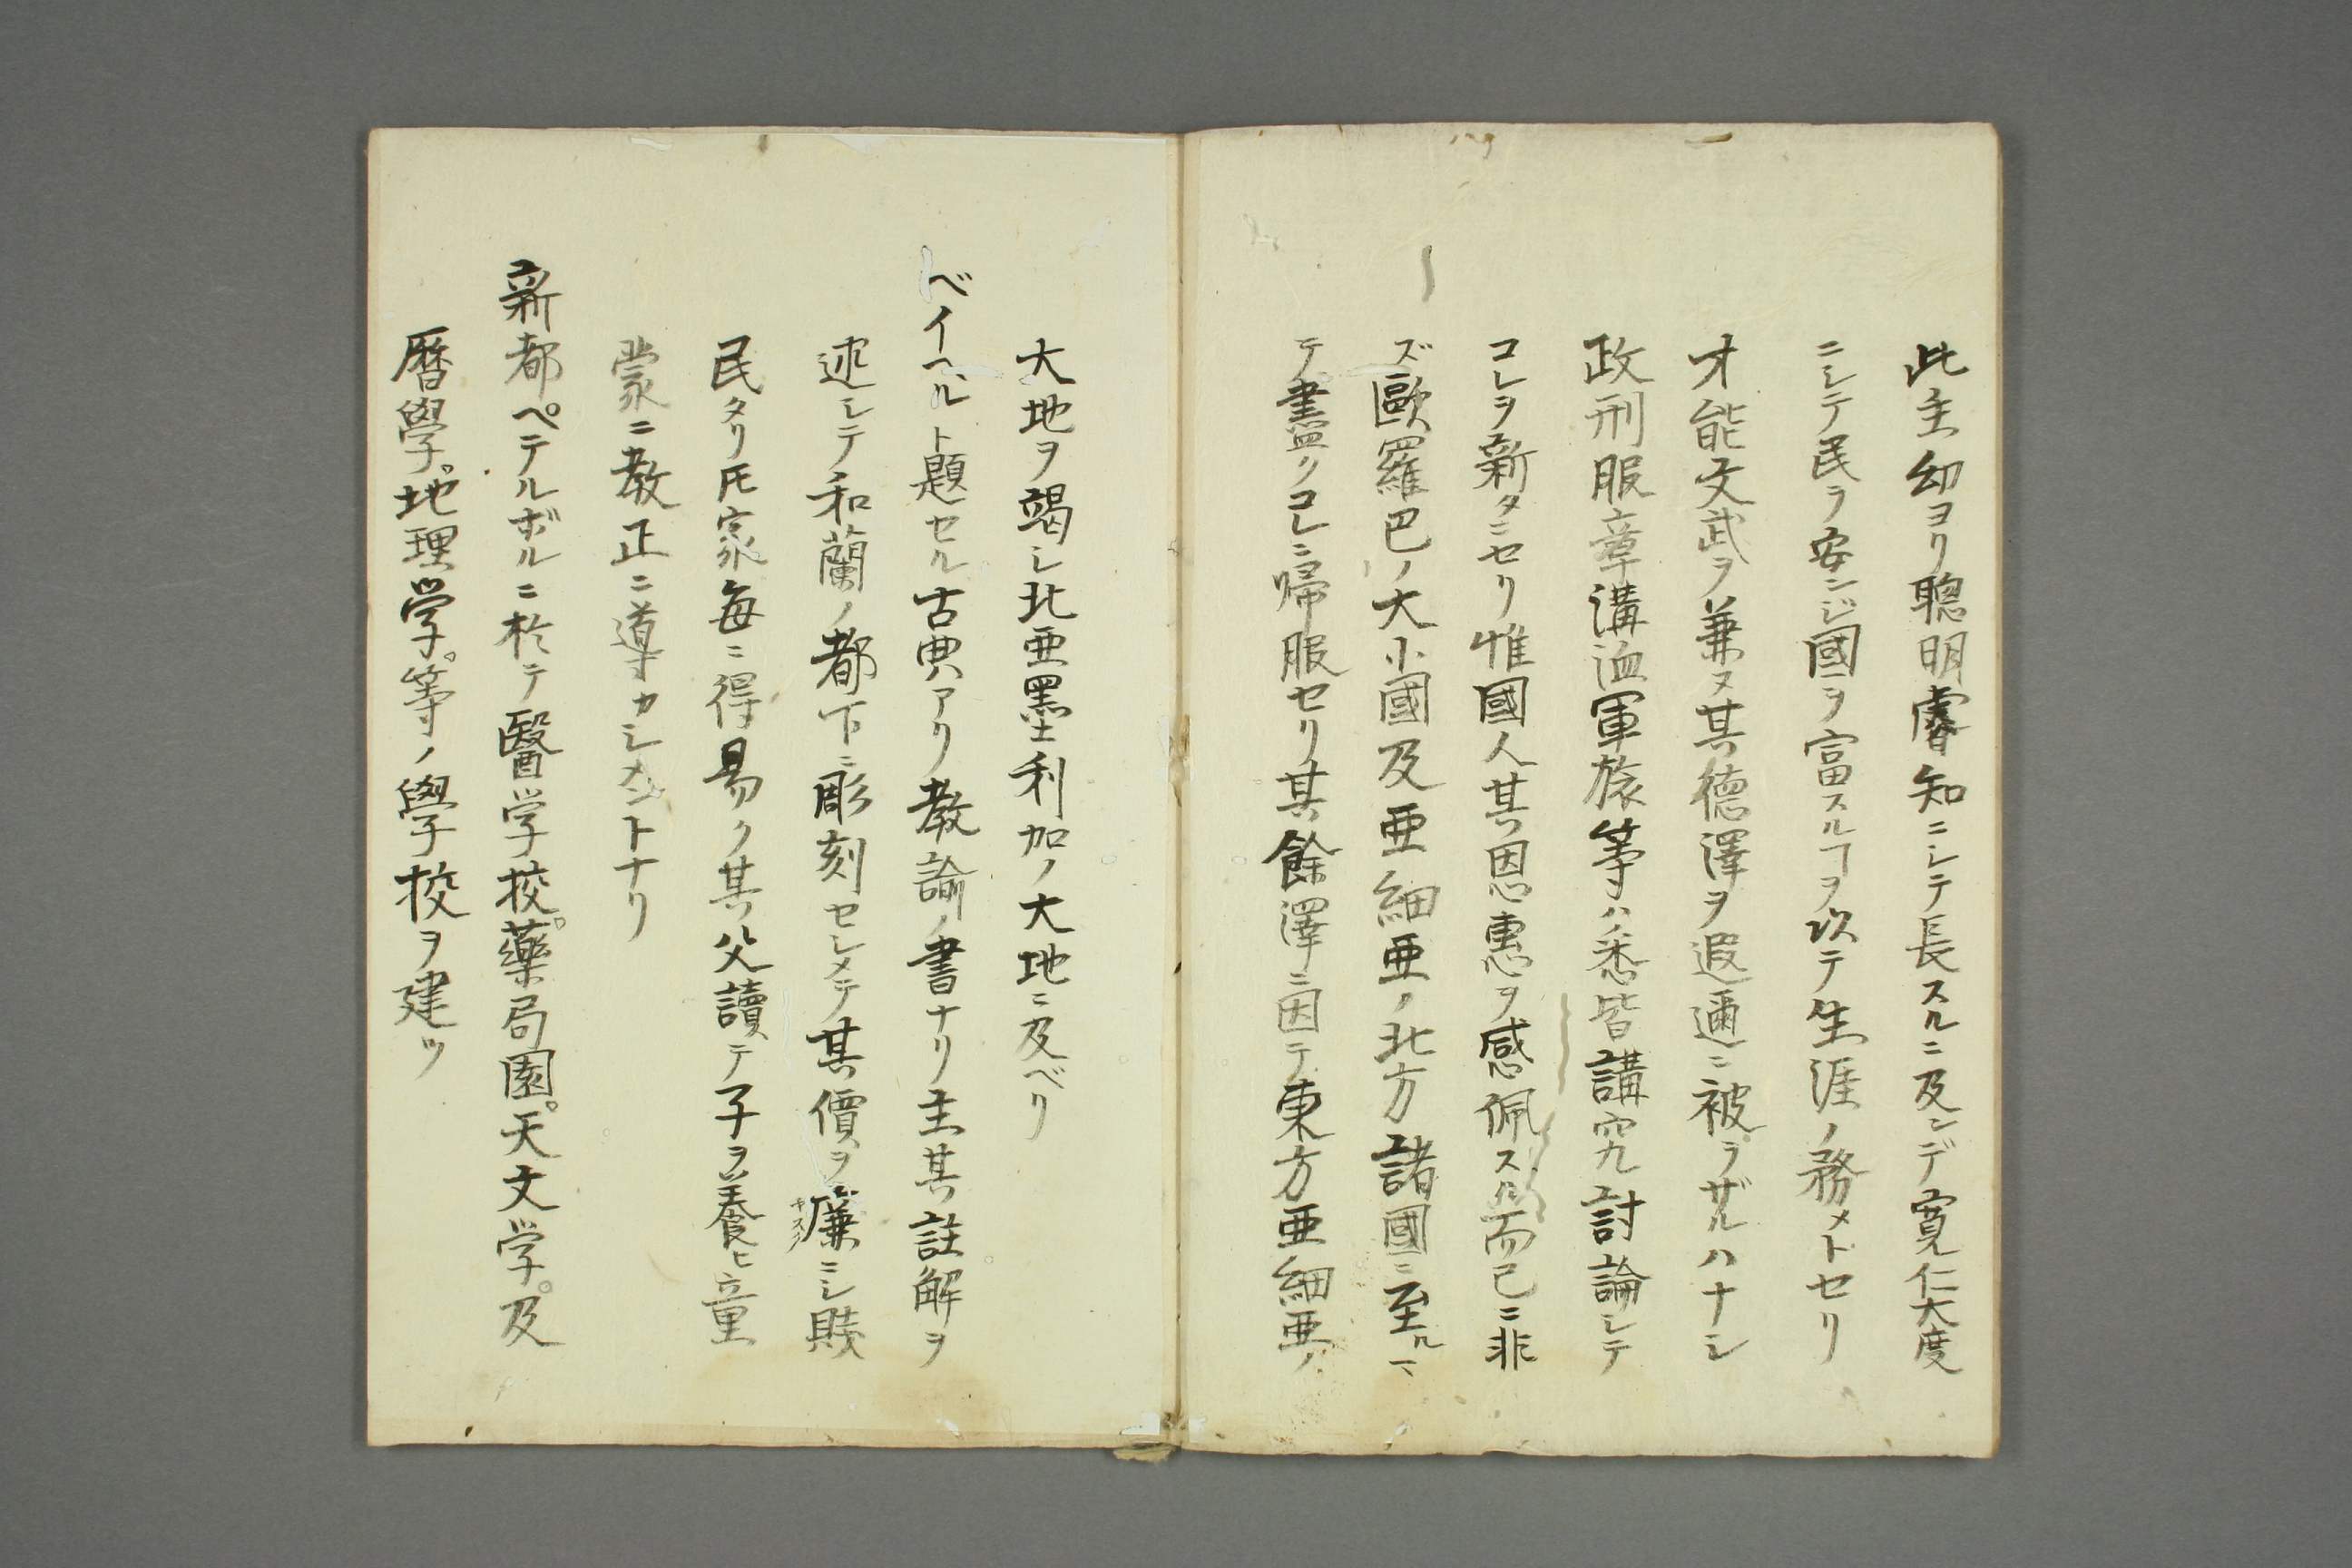 此主幼ヨリ聰明睿知ニシテ長スルニ及ンデ寛仁大度
ニシテ民ヲ安ンジ國ヲ富スルヿヲ以テ生涯ノ務メトセリ
才能文武ヲ兼ヌ其徳澤ヲ遐邇ニ被ラザルハナシ
政刑服章溝洫軍旅等ハ悉皆講究討論シテ
コレヲ新タニセリ惟國人其恩恵ヲ感佩スル而已ニ非
ズ歐羅巴ノ大小國及亜細亜ノ北方諸國ニ至ルマ
テ盡クコレニ帰服セリ其餘澤ニ因テ東方亜細亜ノ
大地ヲ竭シ北亜墨利加ノ大地ニ及ベリ
ベイベルト題セル古典アリ教諭ノ書ナリ主其註解ヲ
述シテ和蘭ノ都下ニ彫刻セシメテ其價ヲ廉ニシ賤
ヤスク
民タリ𪜈家毎ニ得易ク其父讀テ子ヲ養ヒ童
蒙ニ教正ニ導カシメントナリ
新都ペテルボルニ於テ醫学校。藥局園。天文学。及
暦學。地理学。等ノ學校ヲ建ツ